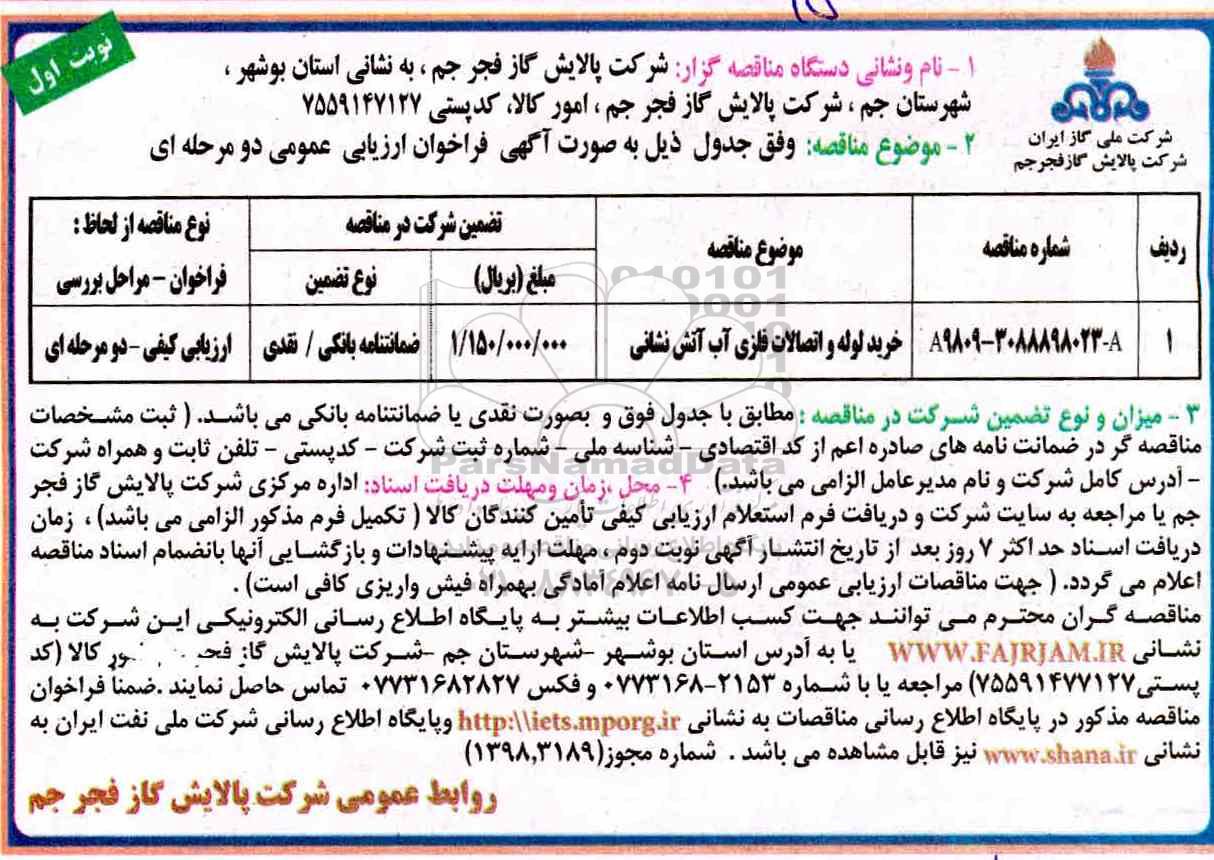 نوبت اول
شرکت ملی گاز ایران
شرکت پالایش گاز فجر جم
۱ - نام ونشانی دستگاه مناقصه گزار: شرکت پالایش گاز فجر جم ، به نشانی استان بوشهر ،
شهرستان جم ، شرکت پالایش گاز فجر جم ، امور کالا، کدپستی ۷۵۵۹۱۴۷۱۲۷
۲ - موضوع مناقصه: وفق جدول ذیل به صورت آگهی فراخوان ارزیابی عمومی دو مرحله ای
ردیف | شماره مناقصه | موضوع مناقصه | تضمین شرکت در مناقصه | نوع مناقصه از لحاظ :
مبلغ (بریال) | نوع تضمین | فراخوان – مراحل بررسی
۱ | A۹۸۰۹-۳۰۸۸۸۹۸۰۲۳-A | خرید لوله و اتصالات فلزی آب آتش نشانی | ۱/۱۵۰/۰۰۰/۰۰۰ | ضمانتنامه بانکی / نقدی | ارزیابی کیفی -دو مرحله ای
۳ - میزان و نوع تضمین شـرکت در مناقصه : مطابق با جدول فوق و بصورت نقدی یا ضمانتنامه بانکی می باشـد. ( ثبت مشـخصات
مناقصه گر در ضمانت نامه های صادره اعم از کد اقتصادی – شناسه ملی – شماره ثبت شرکت – کدپستی – تلفن ثابت و همراه شرکت
– آدرس کامل شرکت و نام مدیرعامل الزامی می باشد.) ۴- محل ،زمان ومهلت دریافت اسناد: اداره مرکزی شرکت پالایش گاز فجر
جم یا مراجعه به سایت شرکت و دریافت فرم استعلام ارزیابی کیفی تأمین کنندگان کالا ( تکمیل فرم مذکور الزامی می باشد) ، زمان
دریافت اسـناد حد اکثر ۷ روز بعد از تاریخ انتشـار آگهی نوبت دوم ، مهلت ارایه پیشـنهادات و بازگشـایی آنها بانضمام اسناد مناقصه
اعلام می گردد. ( جهت مناقصات ارزیابی عمومی ارسال نامه اعلام آمادگی بهمراه فیش واریزی کافی است) .
مناقصـه گـران محتـرم مـی تواننـد جهـت کسـب اطلاعـات بیشـتر بـه پایـگاه اطـلاع رسـانی الکترونیکـی ایـن شـرکت بـه
نشـانی WWW.FAJRJAM.IR یا به آدرس اسـتان بوشـهر –شهرسـتان جم –شـرکت پالایش گاز کالا (کد
پسـتی۷۵۵۹۱۴۷۷۱۲۷) مراجعه یا با شـماره ۲۱۵۳-۰۷۷۳۱۶۸ و فکس ۰۷۷۳۱۶۸۲۸۲۷ تماس حاصل نمایند .ضمناً فراخوان
مناقصه مذکور در پایگاه اطلاع رسانی مناقصات به نشانی http:\\iets.mporg.ir وپایگاه اطلاع رسانی شرکت ملی نفت ایران به
نشانی www.shana.ir نیز قابل مشاهده می باشد . شماره مجوز(۱۳۹۸,۳۱۸۹)
روابط عمومی شرکت پالایش گاز فجر جم
ParsNamadData